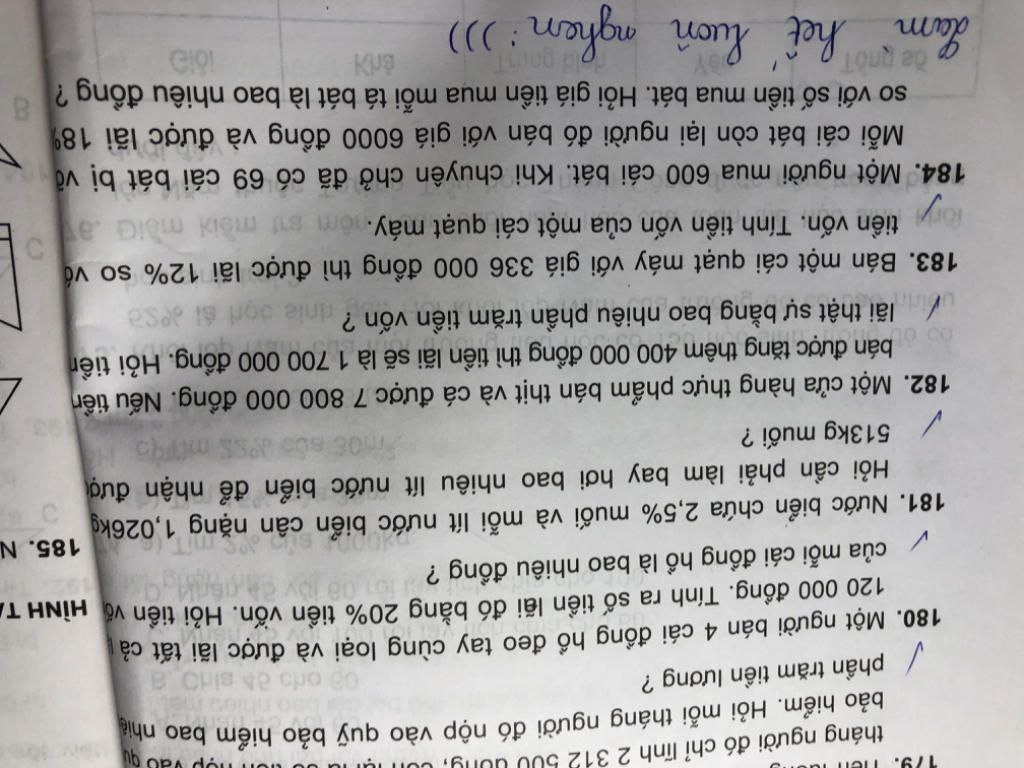 179.
tháng người đó chỉ lĩnh 2 312 500 đồng, còn lại là số tiền nộp vào
bảo hiểm. Hỏi mỗi tháng người đó nộp vào quỹ bảo hiểm bao
phần trăm tiền lương ?
180. Một người bán 4 cái đồng hồ đeo tay cùng loại và được lãi tất cả
120 000 đồng. Tính ra số tiền lãi đó bằng 20% tiền vốn. Hỏi tiền
của mỗi cái đồng hồ là bao nhiêu đồng ?
181. Nước biển chứa 2,5% muối và mỗi lít nước biển cân nặng 1,026kg
Hỏi cần phải làm bay hơi bao nhiêu lít nước biển để nhận được
513kg muối ?
182. Một cửa hàng thực phẩm bán thịt và cá được 7 800 000 đồng. Nếu tiền
bán được tăng thêm 400 000 đồng thì tiền lãi sẽ là 1 700 000 đồng. Hỏi tiền
lãi thật sự bằng bao nhiêu phần trăm tiền vốn ?
183. Bán một cái quạt máy với giá 336 000 đồng thì được lãi 12% so
tiền vốn. Tính tiền vốn của một cái quạt máy.
184. Một người mua 600 cái bát. Khi chuyên chở đã có 69 cái bát bị
Mỗi cái bát còn lại người đó bán với giá 6000 đồng và được lãi 18%
so với số tiền mua bát. Hỏi giá tiền mua mỗi tá bát là bao nhiêu đồng ?
làm hết luôn nghen :)))
HÌNH
185.